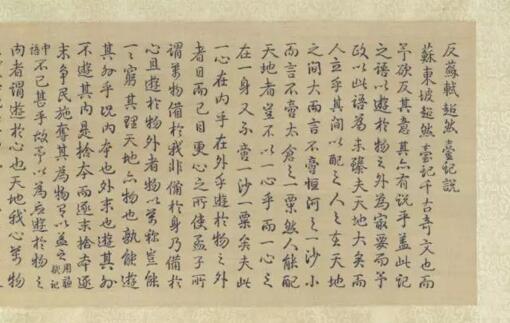 反蘇軾超然臺記說
蘇東坡超然臺記千古奇文也而
予欲反其意其亦有說乎蓋此記
之語以遊於物之外為最要而予
政以此語為未臻夫天地大矣而
人立乎其間以配之人之在天地
之間大而言不啻恒河之一沙小
而言不啻太倉之一粟然人能配
天地者豈不以一心乎而一心之
在一身又不啻一沙一粟矣夫此
一心在內乎在外乎遊於物之外
者目而已目更心之所使孟子所
謂萬物備於我非備於身乃備於
心且遊於物外者物以萬稱豈能
一一窮其理天地亦物也孰能遊
其外乎況內本也外末也遊其外
不遊其內是捨本而逐末捨本逐
末爭民施奪其為物以益
中語不已甚乎故予以為應遊於物之
內者謂遊於心也天地我心萬物